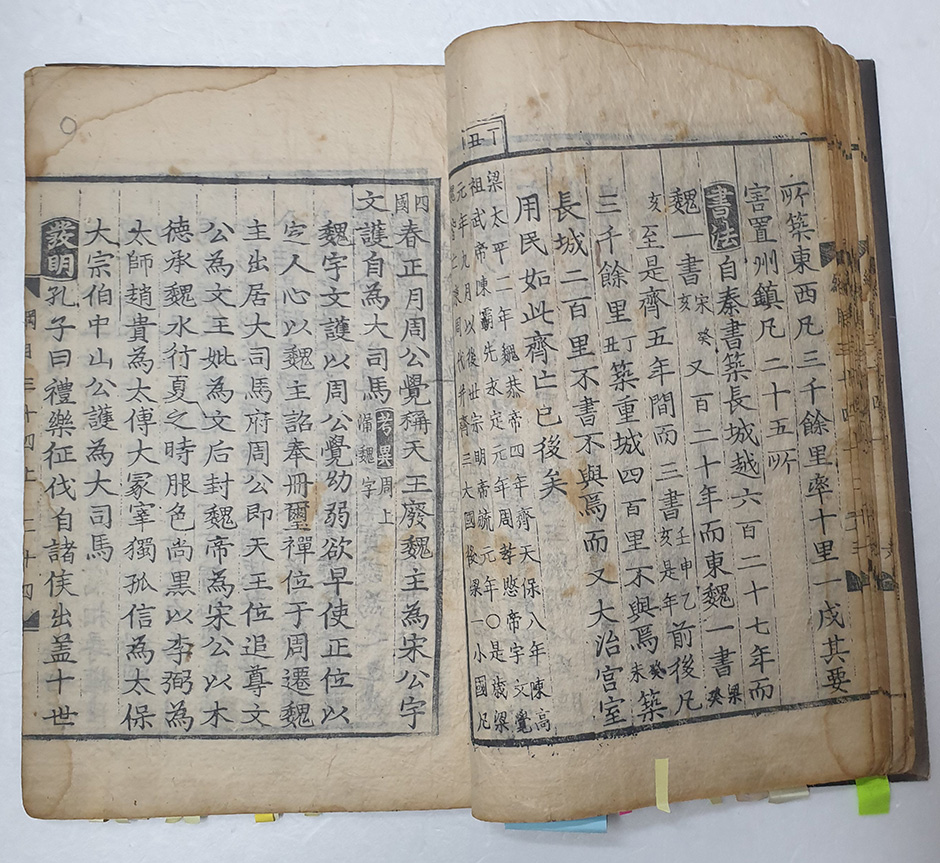 所築東西凡三千餘里率十里一戍其要
害置州鎮凡二十五所
書法 自秦書築長城越六百二十七年而
魏一書宋癸亥又百二十年而東魏一書梁癸
亥至是齊五年間而三書壬申乙亥是年前後凡
三千餘里丁丑築重城四百里不與焉癸未築
長城二百里不書不與焉而又大治宮室
用民如此齊亡已後矣
丁丑
梁太平二年魏恭帝四年齊天保八年陳高
祖武帝陳霸先永定元年周孝愍帝宇文覺
元年九月以後世宗明帝毓元年〇是歲梁
亡陳周代并齊三大國後梁一小國凡
四國春正月周公覺稱天王廢魏主為宋公宇
文護自為大司馬 考異 周上漏魏字
魏宇文護以周公覺幼弱欲早使正位以
定人心以魏主詔奉冊璽禪位于周遷魏
主出居大司馬府周公即天王位追尊文
公為文王妣為文后封魏帝為宋公以木
德承魏水行夏之時服色尚黑以李弼為
太師趙貴為太傅大冢宰獨孤信為太保
大宗伯中山公護為大司馬
發明 孔子曰禮樂征伐自諸侯出蓋十世
綱目三十四上 二十四